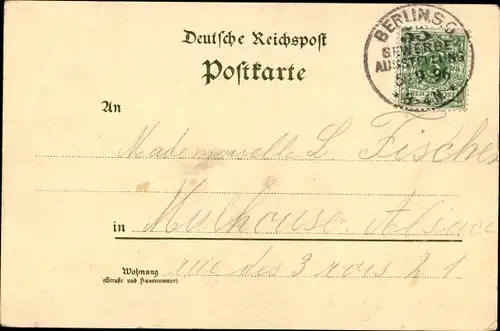 Deutsche Reichspost
Postkarte
BERLIN S.O.
GEWERBE
AUSSTELLUNG
9.96
3-4N.
REICHSPOST
An
Mademoiselle L. Fischer
in Mulhouse Alsace
Wohnung
(Straße und Hausnummer)
rue des 3 rois 21